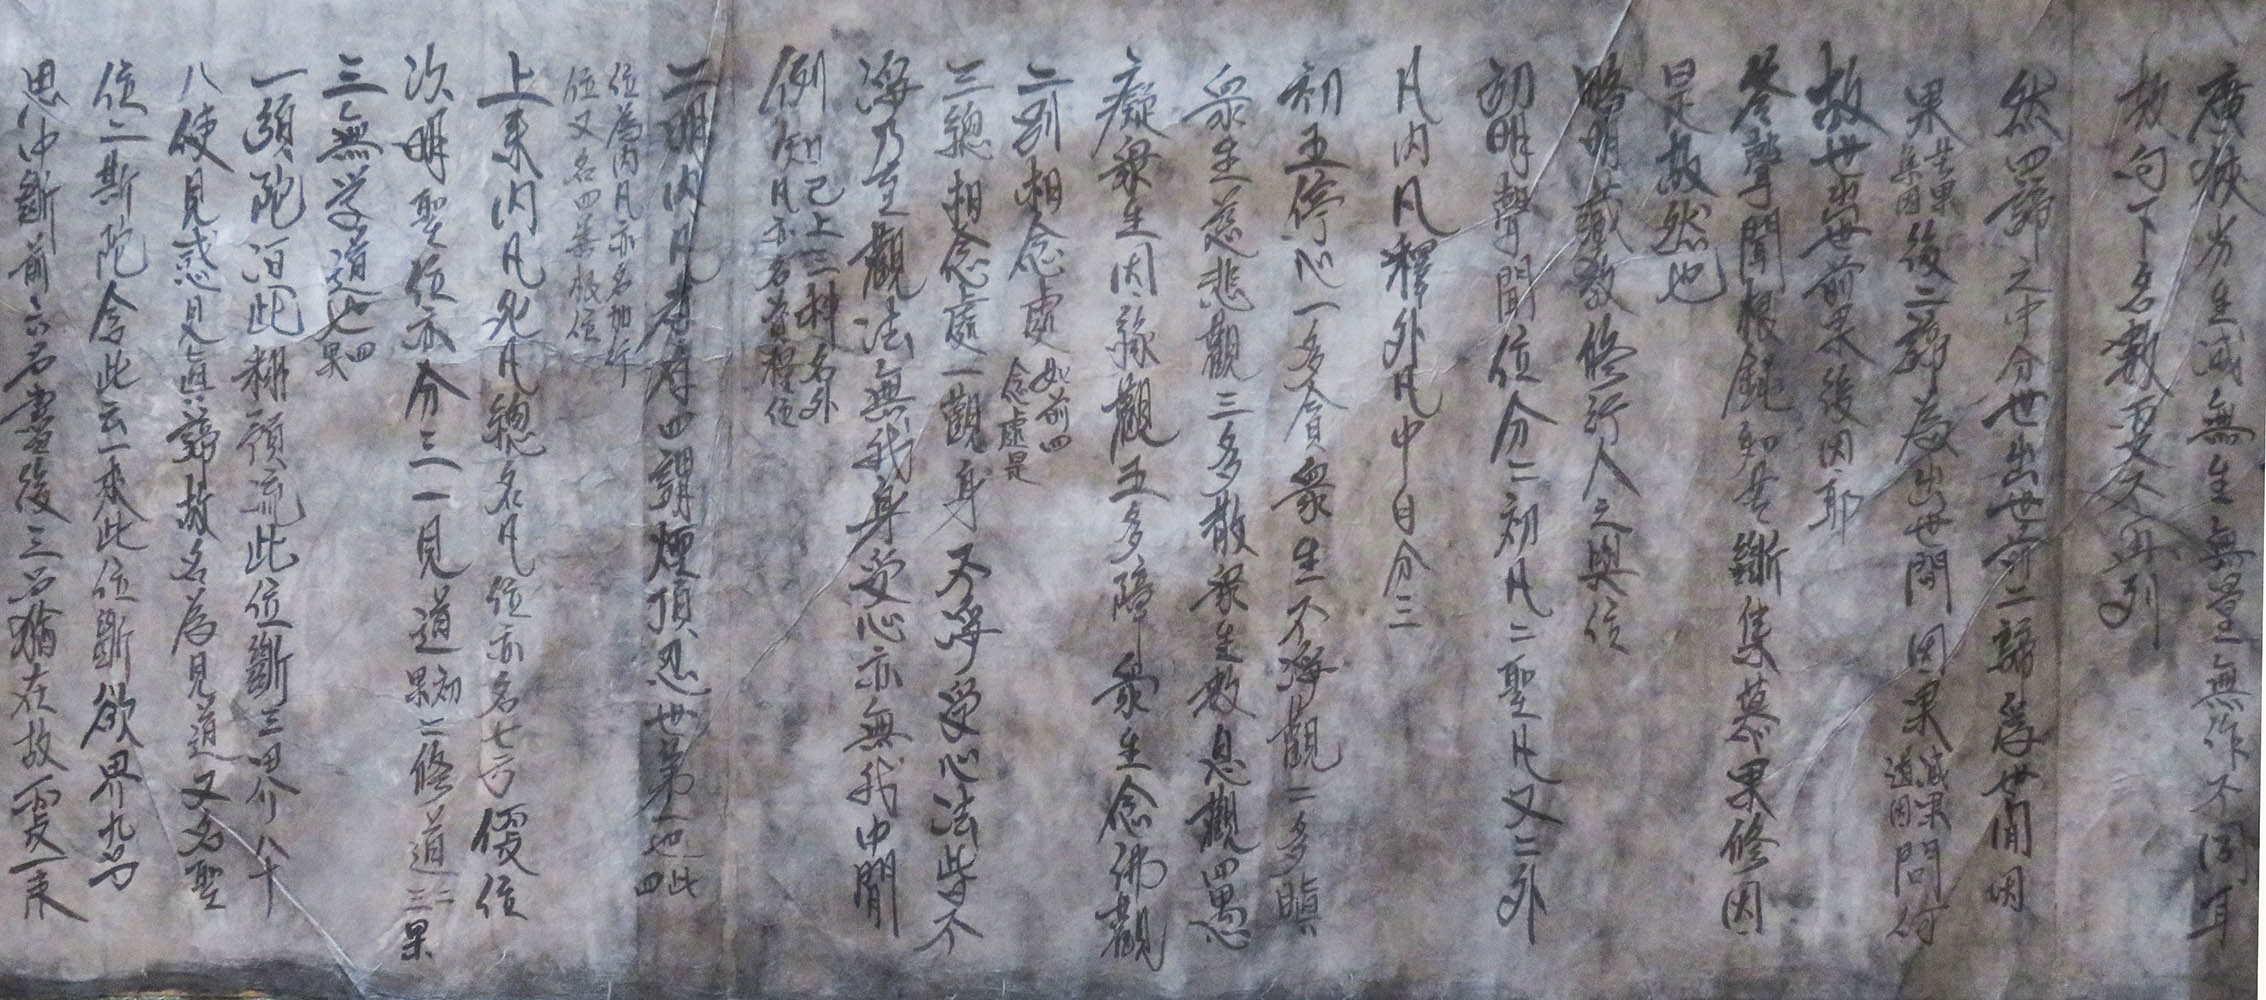 廣狹劣生滅無生無量無作不同耳
故句下名數更不再列
然四諦之中分世出世前二諦為世間因
果苦果集因後二諦為出世間因果滅果道因問何
故世出世前果後因耶
答聲聞根鈍知苦斷集慕果修因
是故然也
略明藏教修行人之與位
初明聲聞位分二初凡二聖凡又二外
凡内凡釋外凡中自分三
初五停心一多貪衆生不淨觀二多瞋
衆生慈悲觀三多散衆生數息觀四愚
癡衆生因緣觀五多障衆生念佛觀
二別相念處如前四念處是
三總相念處一觀身不淨受心法皆不
淨乃至觀法無我身受心亦無我中間
例知已上三科名外凡亦名資糧位
二明内凡者有四謂煖頂忍世第一也此四
位為内凡亦名加行位又名四善根位
上來内凡外凡總名凡位亦名七方便位
次明聖位亦分三一見道初果二修道二三果
三無学道四果
一須陀洹此翻預流此位斷三界八十
八使見惑見真諦故名為見道又名聖
位二斯陀含此云一來此位斷欲界九品
思中斷前六品盡後三品猶在故更一來